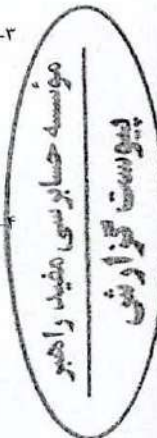 ۳-
مؤسسه حسابرسی مفید راهبر
پیوست گزارش